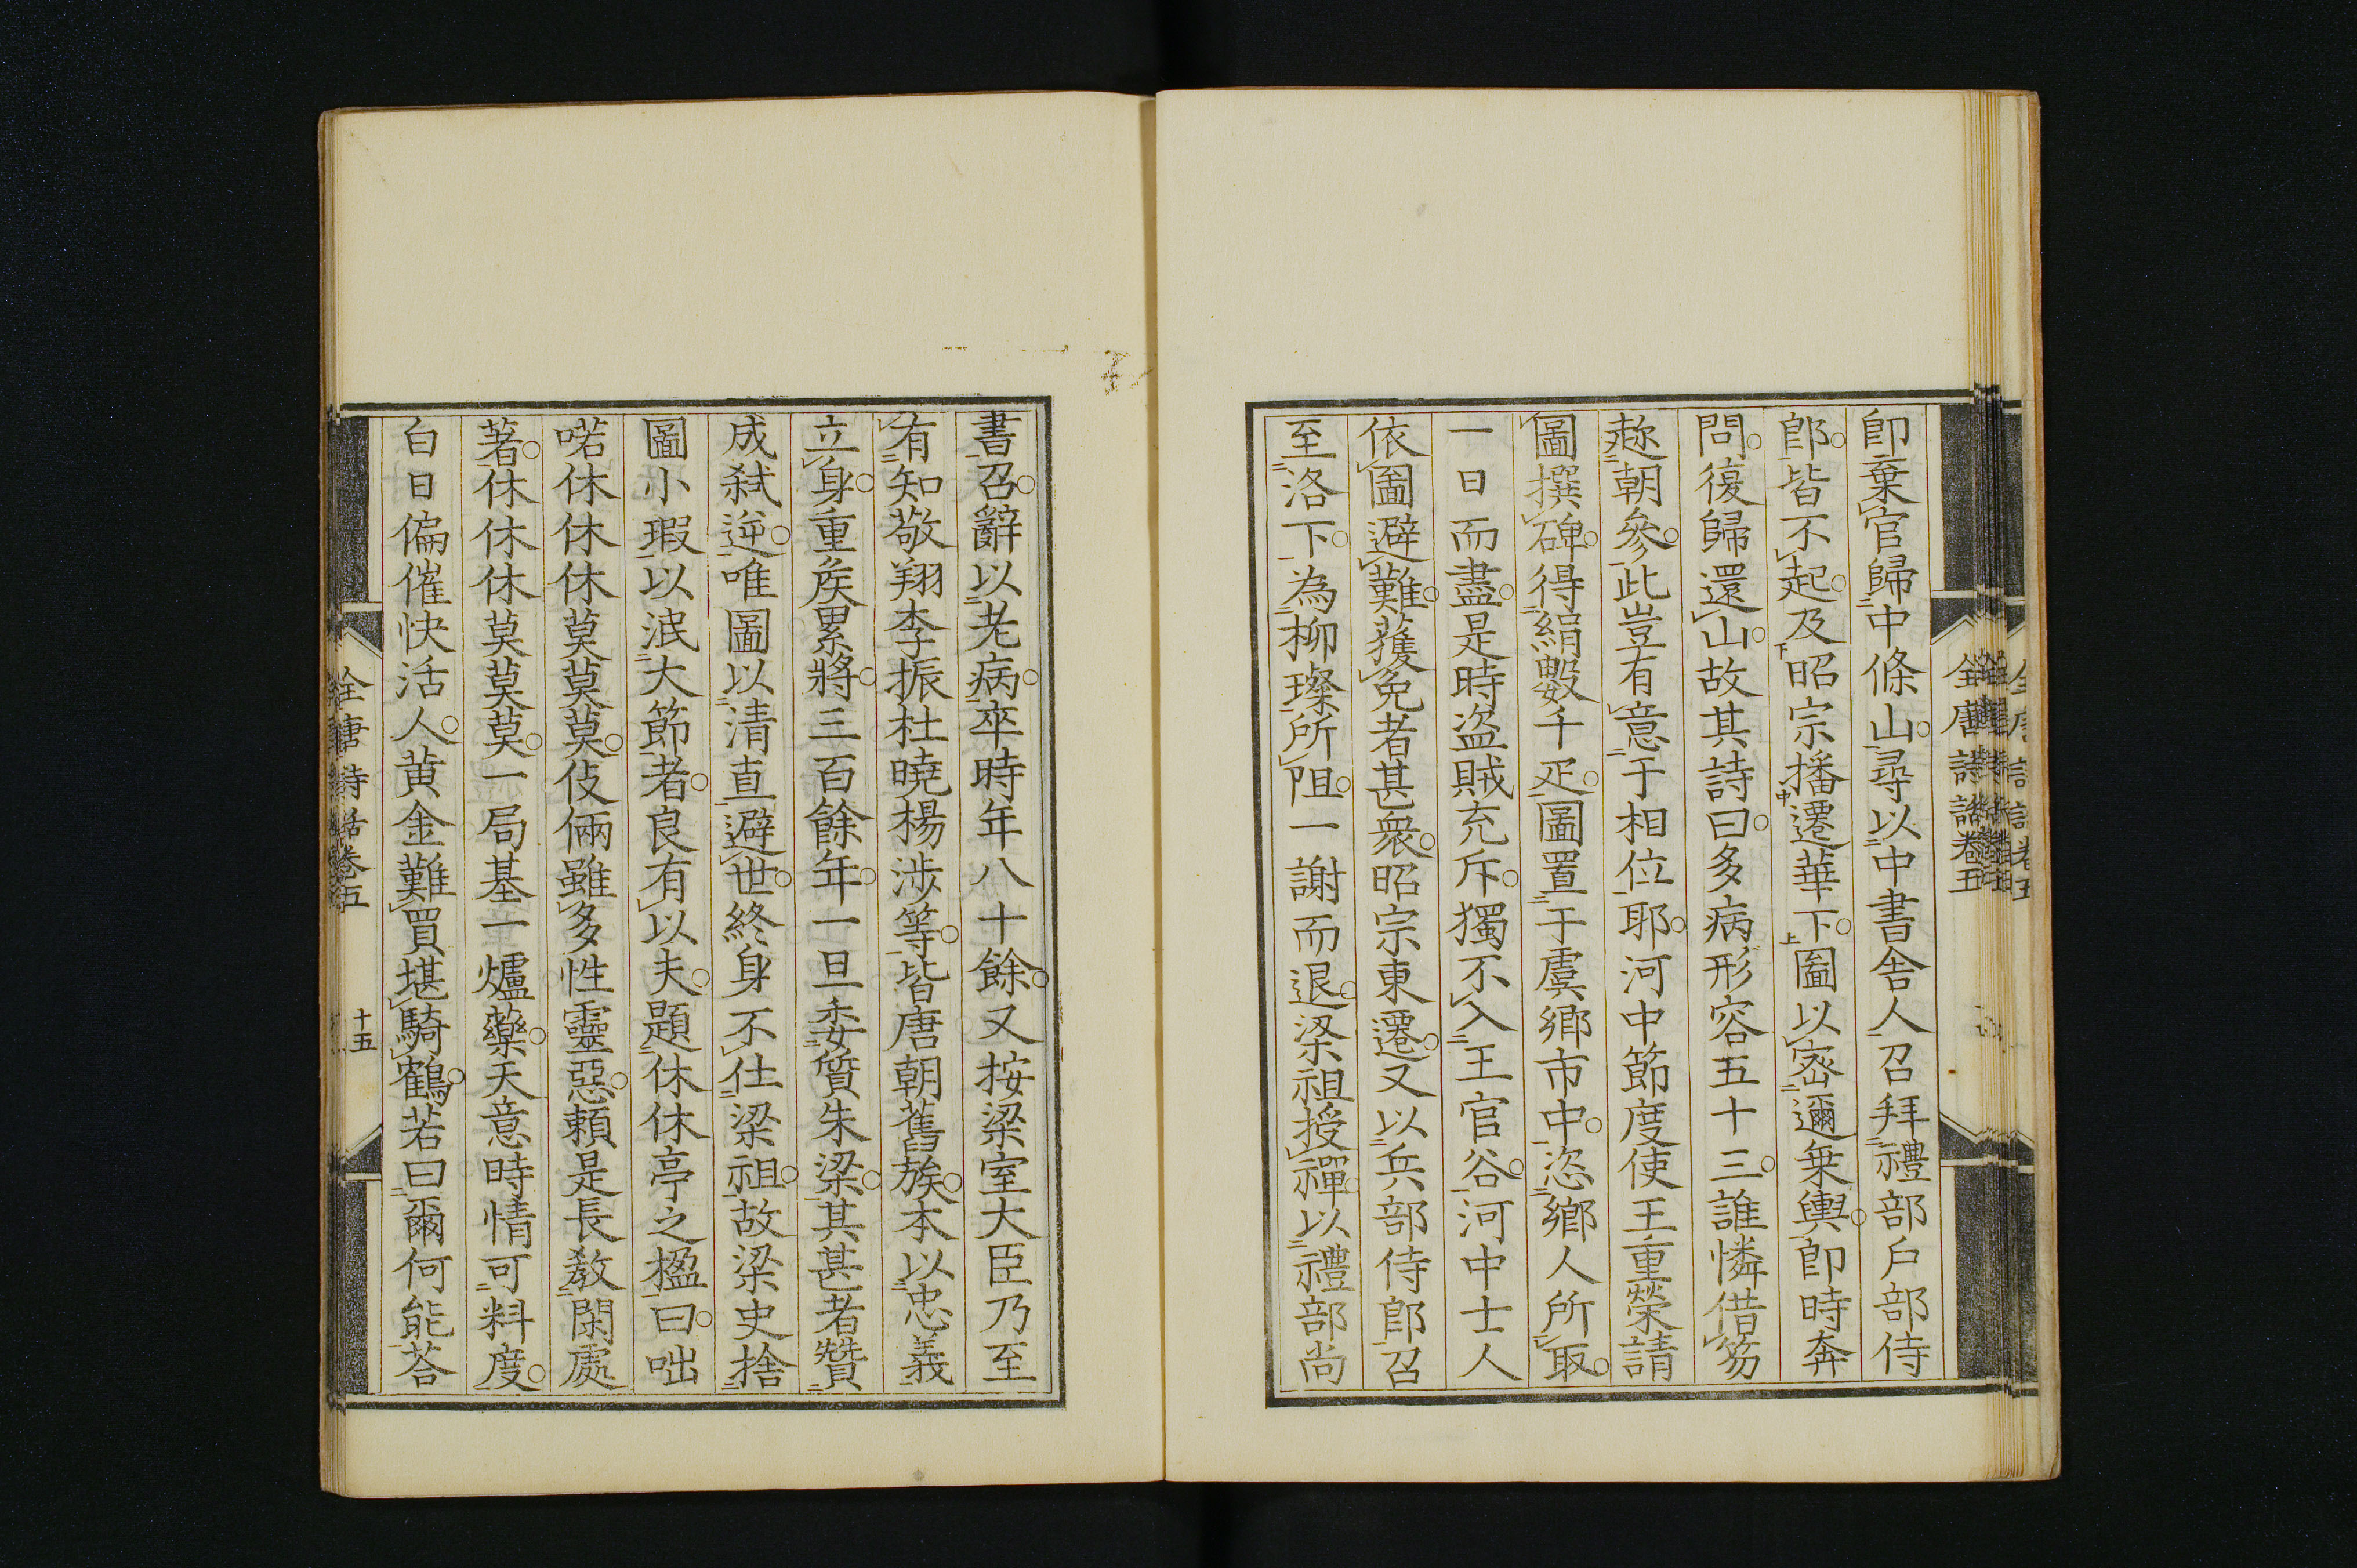 即棄官歸中條山尋以中書舍人召拜禮部戶部侍
郎皆不起及昭宗播遷華下圖以密邇乗輿即時奔
問復歸還山故其詩曰多病形容五十三誰憐借笏
趂朝參此豈有意于相位耶河中節度使王重榮請
圖撰碑得絹數千疋圖置于虞鄉市中恣鄉人所取
一日而盡是時盜賊充斥獨不入王官谷河中士人
依圖避難獲免者甚衆昭宗東遷又以兵部侍郎召
至洛下為柳璨所阻一謝而退梁祖授禪以禮部尚
全唐詩話卷五
書召辭以老病卒時年八十餘又按梁室大臣乃至
有知敬翔李振杜曉楊涉等皆唐朝舊族本以忠義
立身重矦累將三百餘年一旦委質朱梁其甚者贊
成弒逆唯圖以清直避世終身不仕梁祖故梁史捨
圖小瑕以泯大節者良有以夫題休休亭之楹曰咄
喏休休休莫莫莫伎倆雖多性靈惡賴是長教閑處
著休休休莫莫莫一局基一爐藥天意時情可料度
白日偏催快活人黃金難買堪騎鶴若曰爾何能荅
全唐詩話卷五
十五